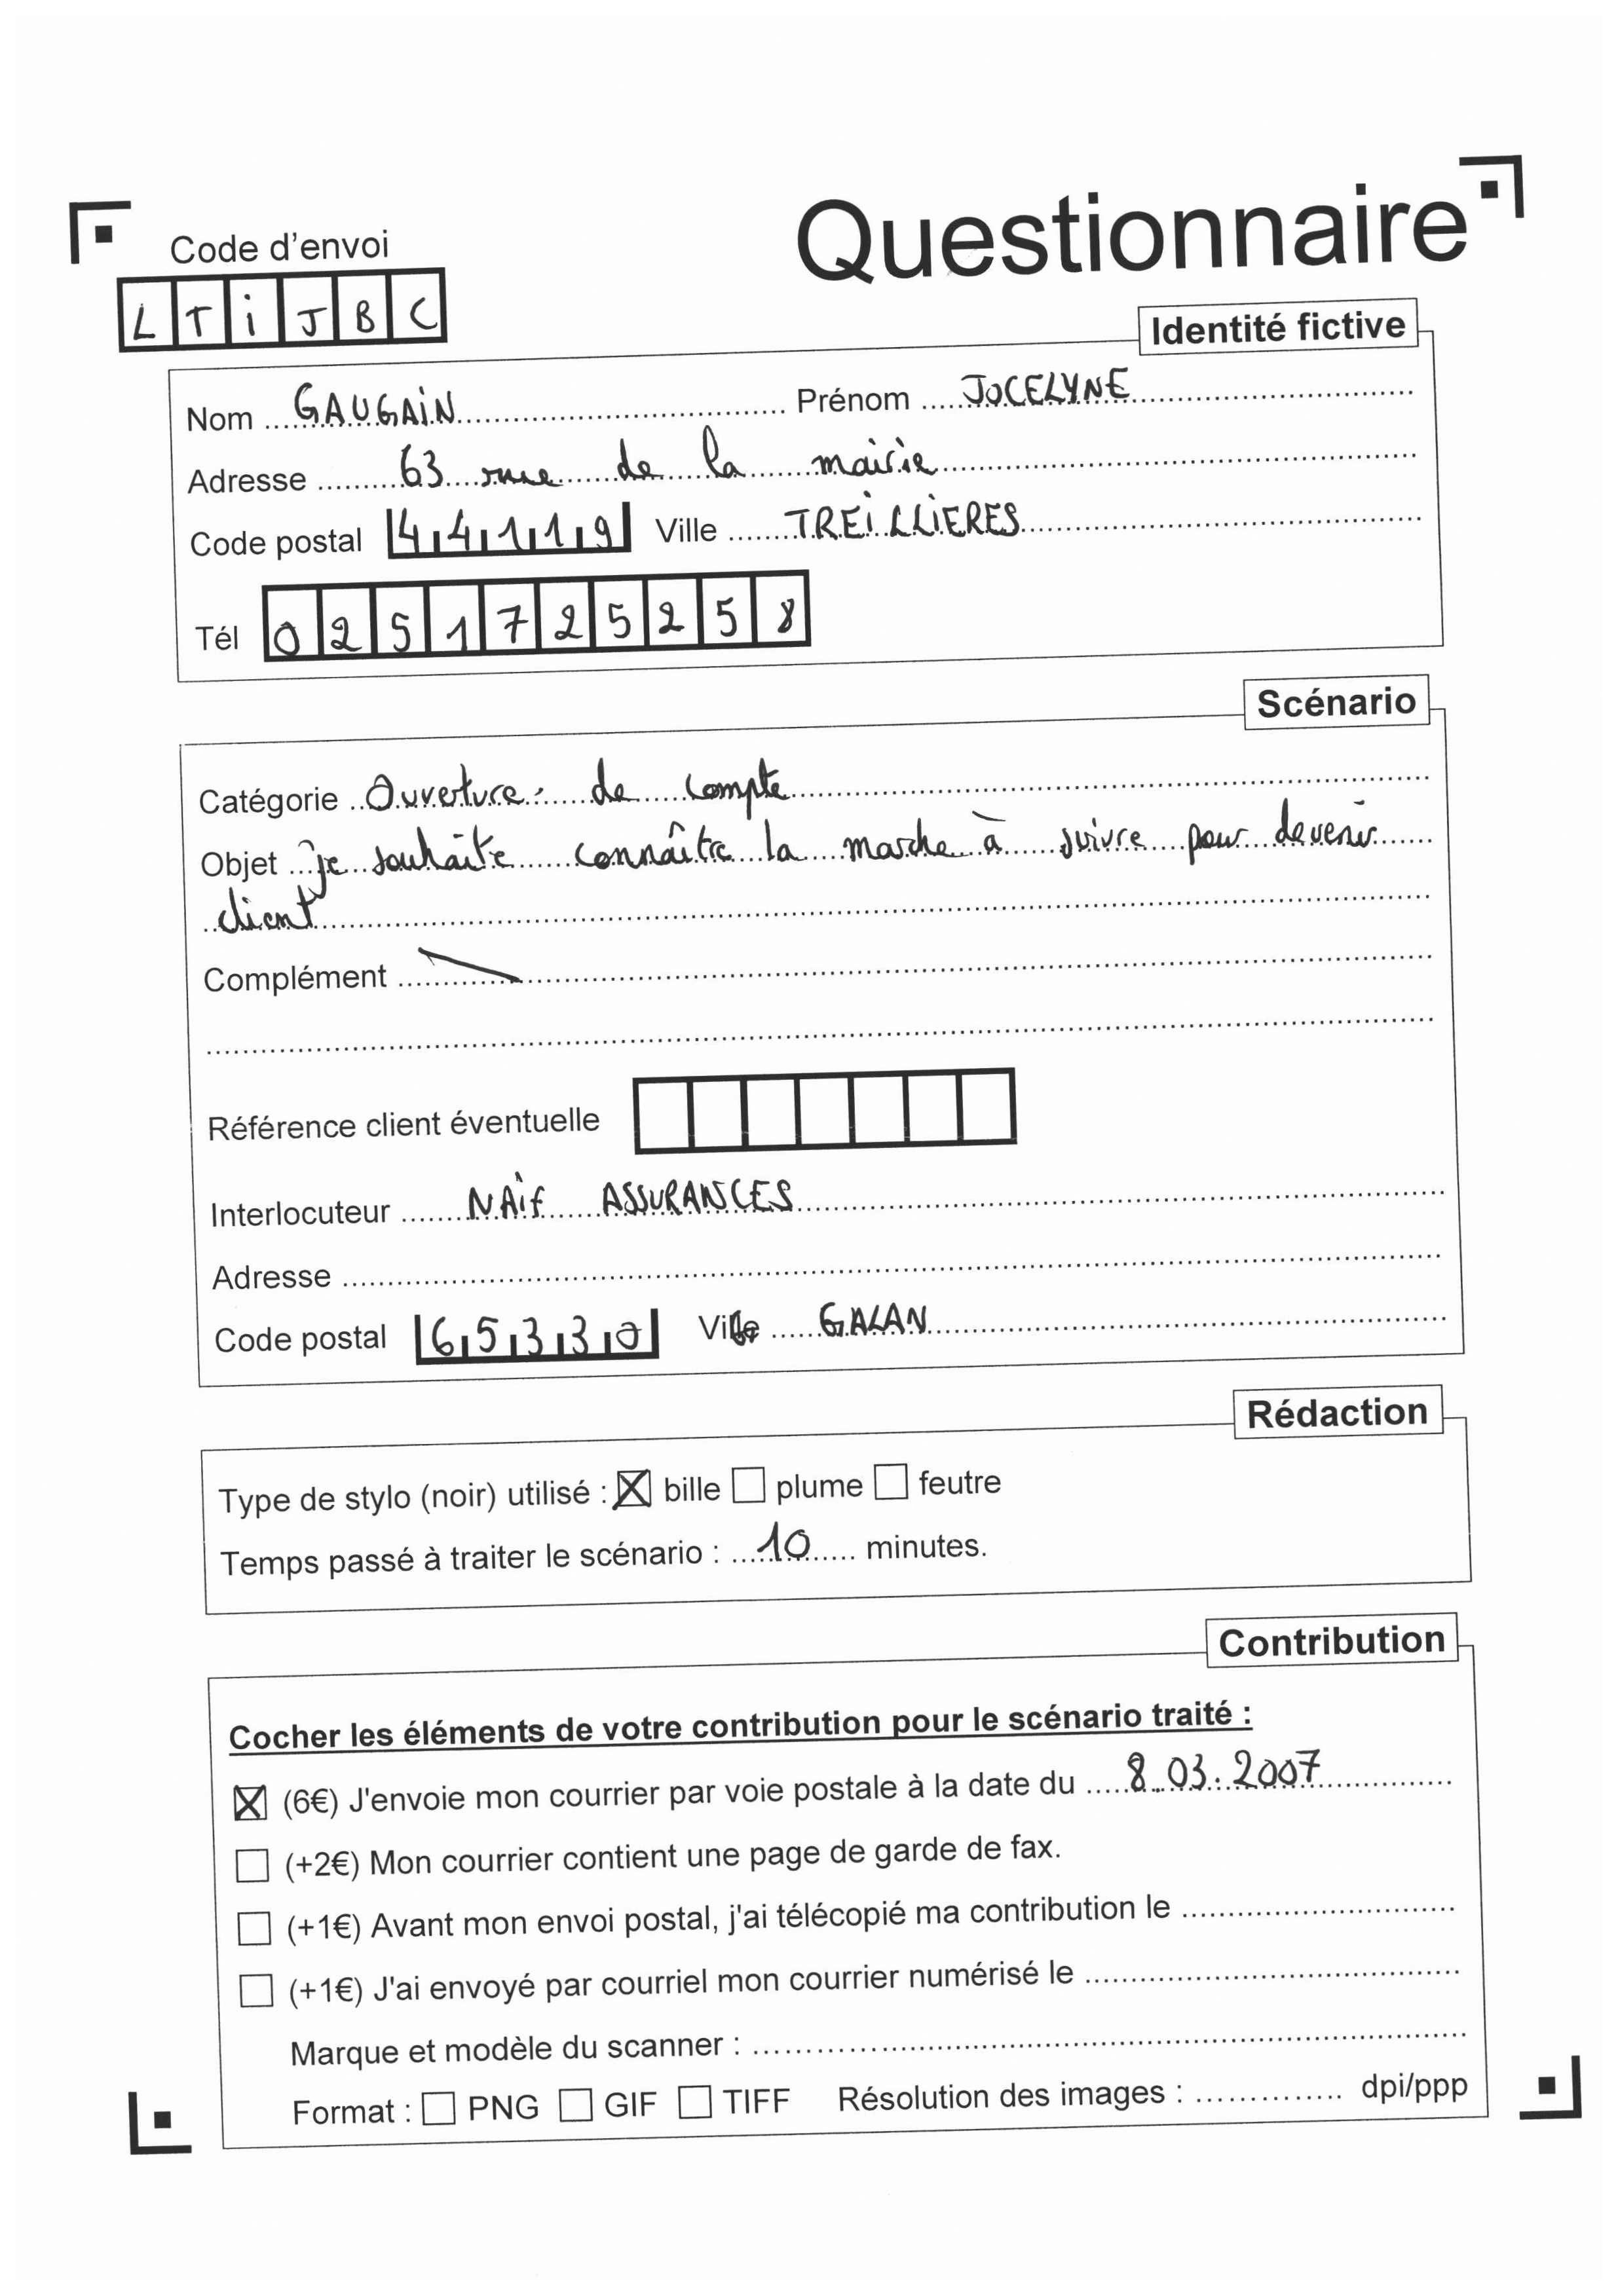 Questionnaire
Code d'envoi
LTiJBC
Identité fictive
Nom GAUGAiN Prénom JOCELYNE
Adresse 63 rue de la mairie
Code postal 44119 Ville TREiLLiERES
Tél 0251725258
Scénario
Catégorie Ouverture de compte
Objet je souhaite connaître la marche à suivre pour devenir
client
Complément
Référence client éventuelle
Interlocuteur NAif ASSURANCES
Adresse
Code postal 65330 Ville GALAN
Rédaction
Type de stylo (noir) utilisé : bille plume feutre
Temps passé à traiter le scénario : 10 minutes.
Contribution
Cocher les éléments de votre contribution pour le scénario traité :
(6€) J'envoie mon courrier par voie postale à la date du 8.03.2007
(+2€) Mon courrier contient une page de garde de fax.
(+1€) Avant mon envoi postal, j'ai télécopié ma contribution le
(+1€) J'ai envoyé par courriel mon courrier numérisé le
Marque et modèle du scanner :
Format : PNG GIF TIFF Résolution des images : dpi/ppp